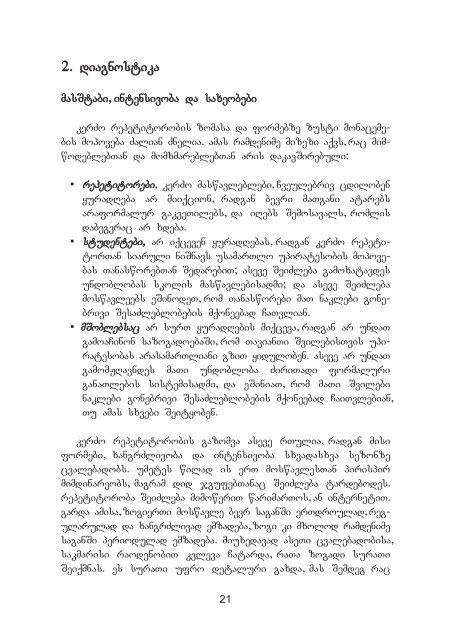 2. დიაგნოსტიკა
მასშტაბი, ინტენსივობა და სახეობები
კერძო რეპეტიტორობის ზომასა და ფორმებზე ზუსტი მონაცემე-
ბის მოპოვება ძალიან ძნელია. ამას რამდენიმე მიზეზი აქვს, რაც მიმ-
წოდებლებთან და მომხმარებლებთან არის დაკავშირებული:
• რეპეტიტორები, კერძო მასწავლებლები, ჩვეულებრივ ცდილობენ
ყურადღება არ მიიქციონ, რადგან ბევრი მათგანი ატარებს
არაფორმალურ გაკვეთილებს, და იღებს შემოსავალს, რომლის
დაბეგვრაც არ ხდება.
• სტუდენტები, არ იქცევენ ყურადღებას, რადგან კერძო რეპეტი-
ტორთან სიარული ნიშნავს უსამართლო უპირატესობის მოპოვე-
ბას თანასწორებთან შედარებით; ასევე შეიძლება გამოხატავდეს
უნდობლობას სკოლის მასწავლებისადმი; და ასევე შეიძლება
მოსწავლეებს ეშინოდეთ, რომ თანასწორები მათ ნაკლები გონე-
ბრივი შესაძლებლობების მქონეებად ჩათვლიან.
• მშობლებსაც არ სურთ ყურადღების მიქცევა, რადგან არ უნდათ
გამოაჩინონ საზოგადოებაში, რომ თავიანთი შვილებისთვის უპი-
რატესობას არასამართლიანი გზით ყიდულობენ. ასევე არ უნდათ
გამომჟღავნდეს მათი უნდობლობა ძირითადი ფორმალური
განათლების სისტემისადმი, და ეშინიათ, რომ მათი შვილები
ნაკლები გონებრივი შესაძლებლობების მქონეებად ჩაითვლებიან,
თუ ამას სხვები შეიტყობენ.
კერძო რეპეტიტორობის გაზომვა ასევე რთულია, რადგან მისი
ფორმები, ხანგრძლივობა და ინტენსივობა სხვადასხვა სეზონზე
ცვალებადობს. უმეტეს წილად ის ერთ მოსწავლესთან პირისპირ
მიმდინარეობს, მაგრამ დიდ ჯგუფებთანაც შეიძლება ტარდებოდეს.
რეპეტიტორობა შეიძლება მიმოწერით წარიმართოს, ან ინტერნეტით.
გარდა ამისა, ზოგიერთი მოსწავლე ბევრ საგანში ერთდროულად, რეგ-
ულარულად და ხანგრძლივად ემზადება, ზოგი კი მხოლოდ რამდენიმე
საგანში პერიოდულად ემზადება. მიუხედავად ასეთი ცვალებადობისა,
საკმარისი რაოდენობით კვლევა ჩატარდა, რათა ზოგადი სურათი
შეიქმნას. ეს სურათი უფრო დეტალური გახდა, მას შემდეგ რაც
21